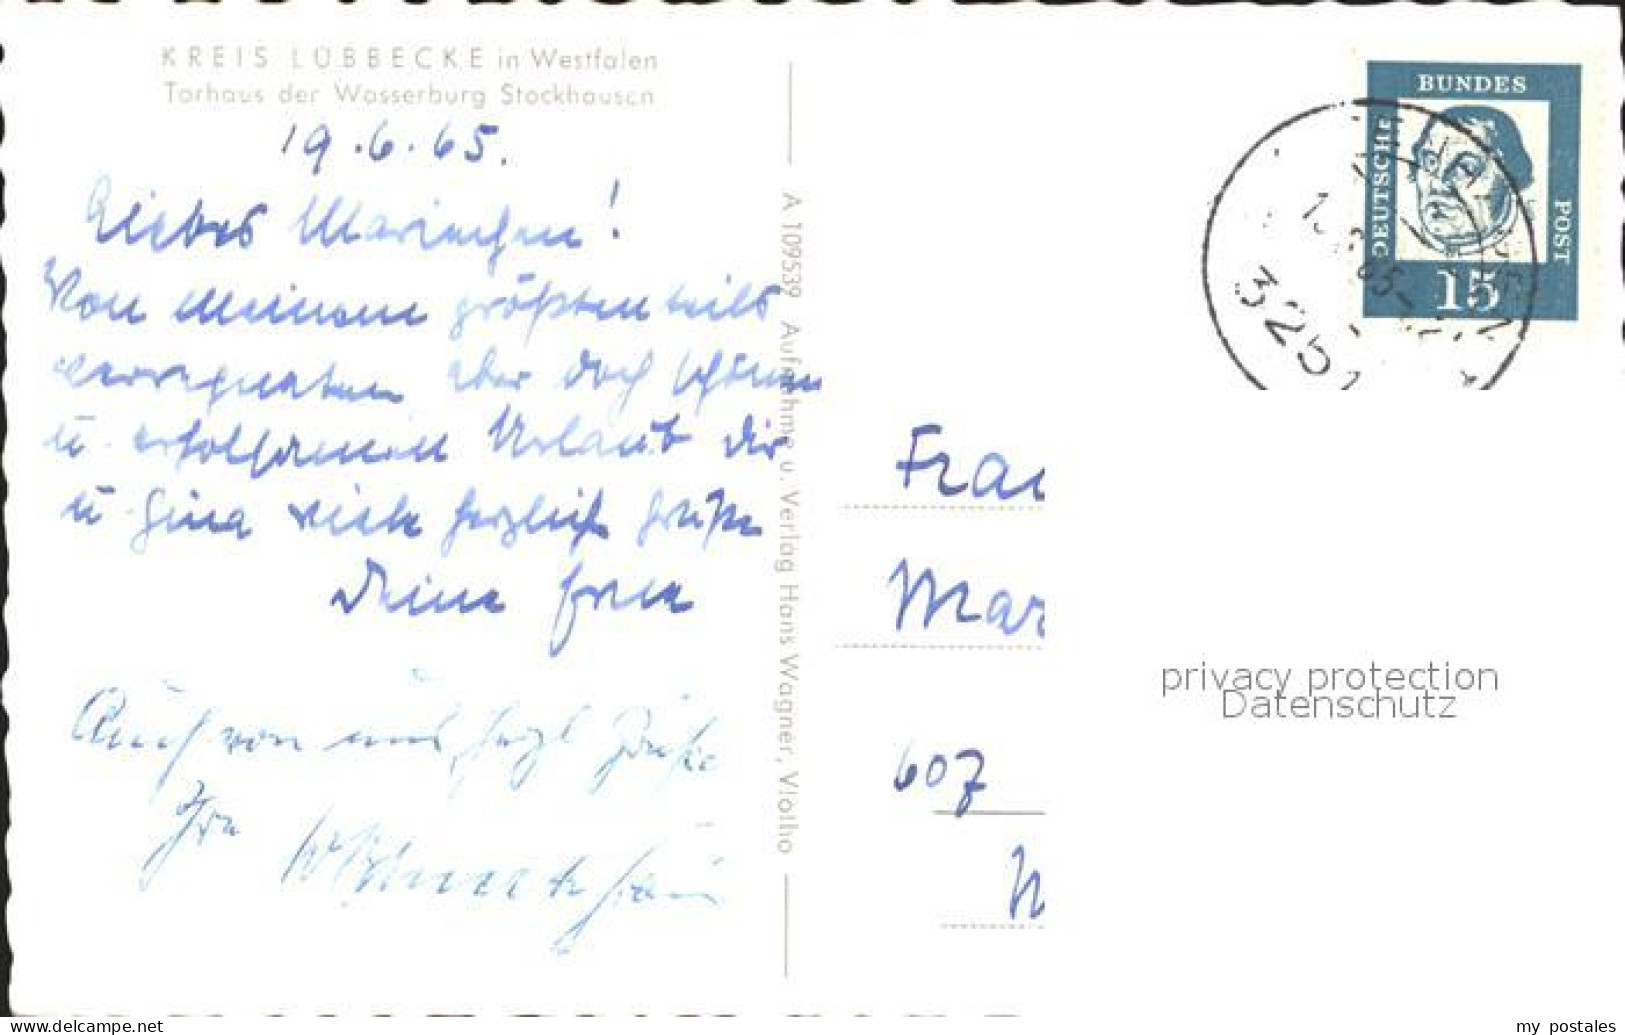 KREIS LÜBBECKE in Westfalen
Torhaus der Wasserburg Stockhausen
19.6.65.
Liebes Marinchen!
Von meinem größtenteils
verregneten aber doch schönen
u. erfolgreichen Urlaub dir
u. viele herzliche Grüße
Deine
Auch von uns herzl Grüße
Ihre
A 109539 Aufnahme u. Verlag Hans Wagner, Vlotho
BUNDES
DEUTSCHE
POST
15
325
Frau
Mar
607
privacy protection
Datenschutz
my postales